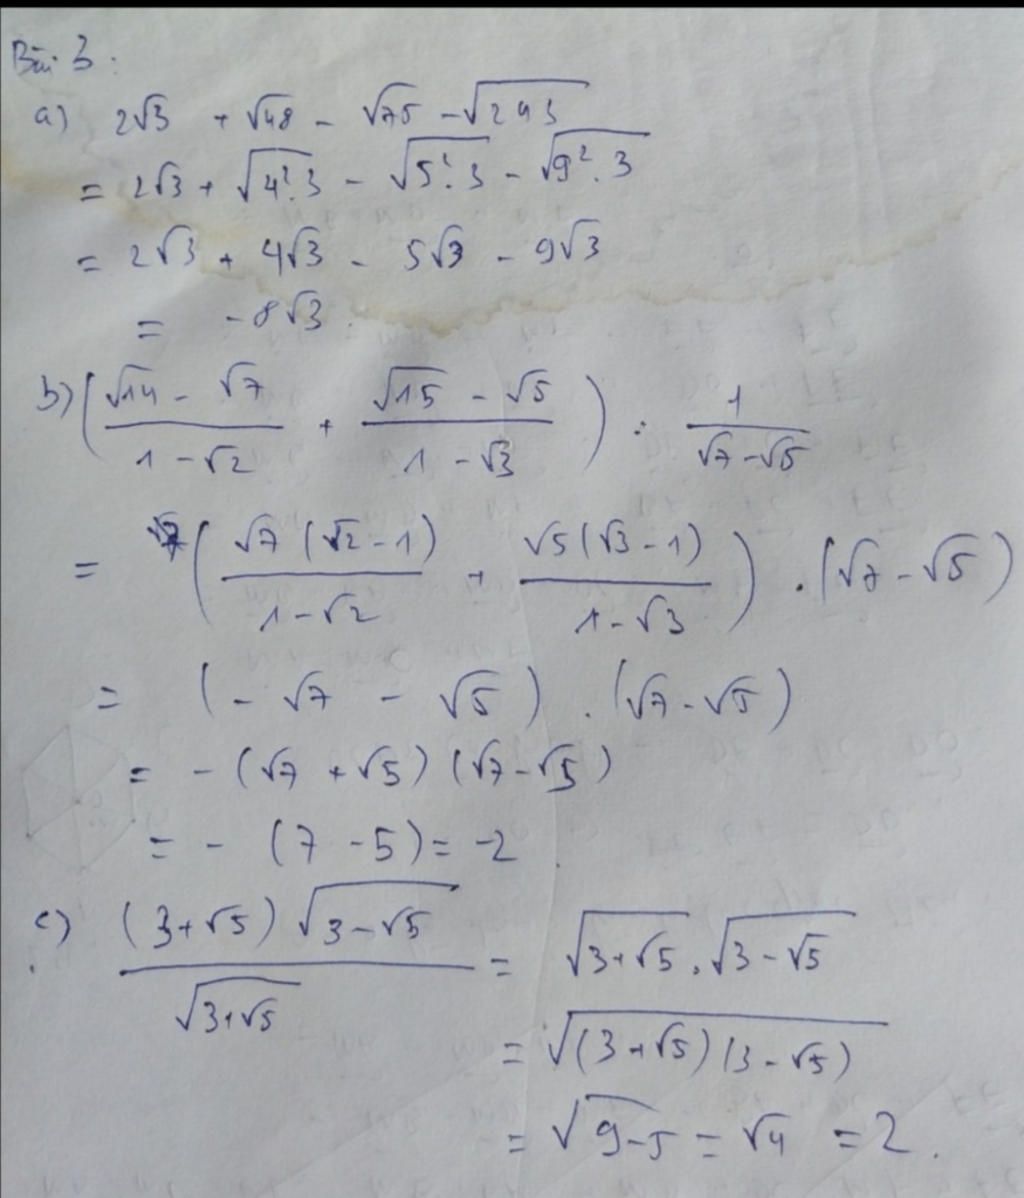 Bài 3:
a) 2√3 + √48 - √75 - √243
= 2√3 + √(4².3) - √(5².3) - √(9².3)
= 2√3 + 4√3 - 5√3 - 9√3
= -8√3.
b) ((√14 - √7)/(1 - √2) + (√15 - √5)/(1 - √3)) : 1/(√7 - √5)
= ((√7(√2 - 1))/(1 - √2) + (√5(√3 - 1))/(1 - √3)) . (√7 - √5)
= (-√7 - √5) . (√7 - √5)
= -(√7 + √5)(√7 - √5)
= -(7 - 5) = -2.
c) ((3 + √5)√(3 - √5))/√(3 + √5) = √(3 + √5) . √(3 - √5)
= √((3 + √5)(3 - √5))
= √(9 - 5) = √4 = 2.